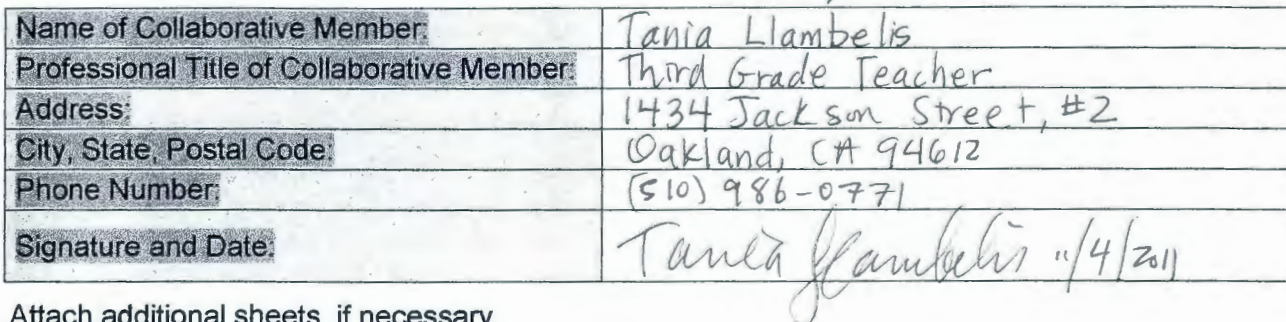 Name of Collaborative Member: Tania Llambelis
Professional Title of Collaborative Member: Third Grade Teacher
Address: 1434 Jackson Street, #2
City, State, Postal Code: Oakland, CA 94612
Phone Number: (510) 986-0771
Signature and Date: Tania Llambelis 11/4/2011
Attach additional sheets, if necessary